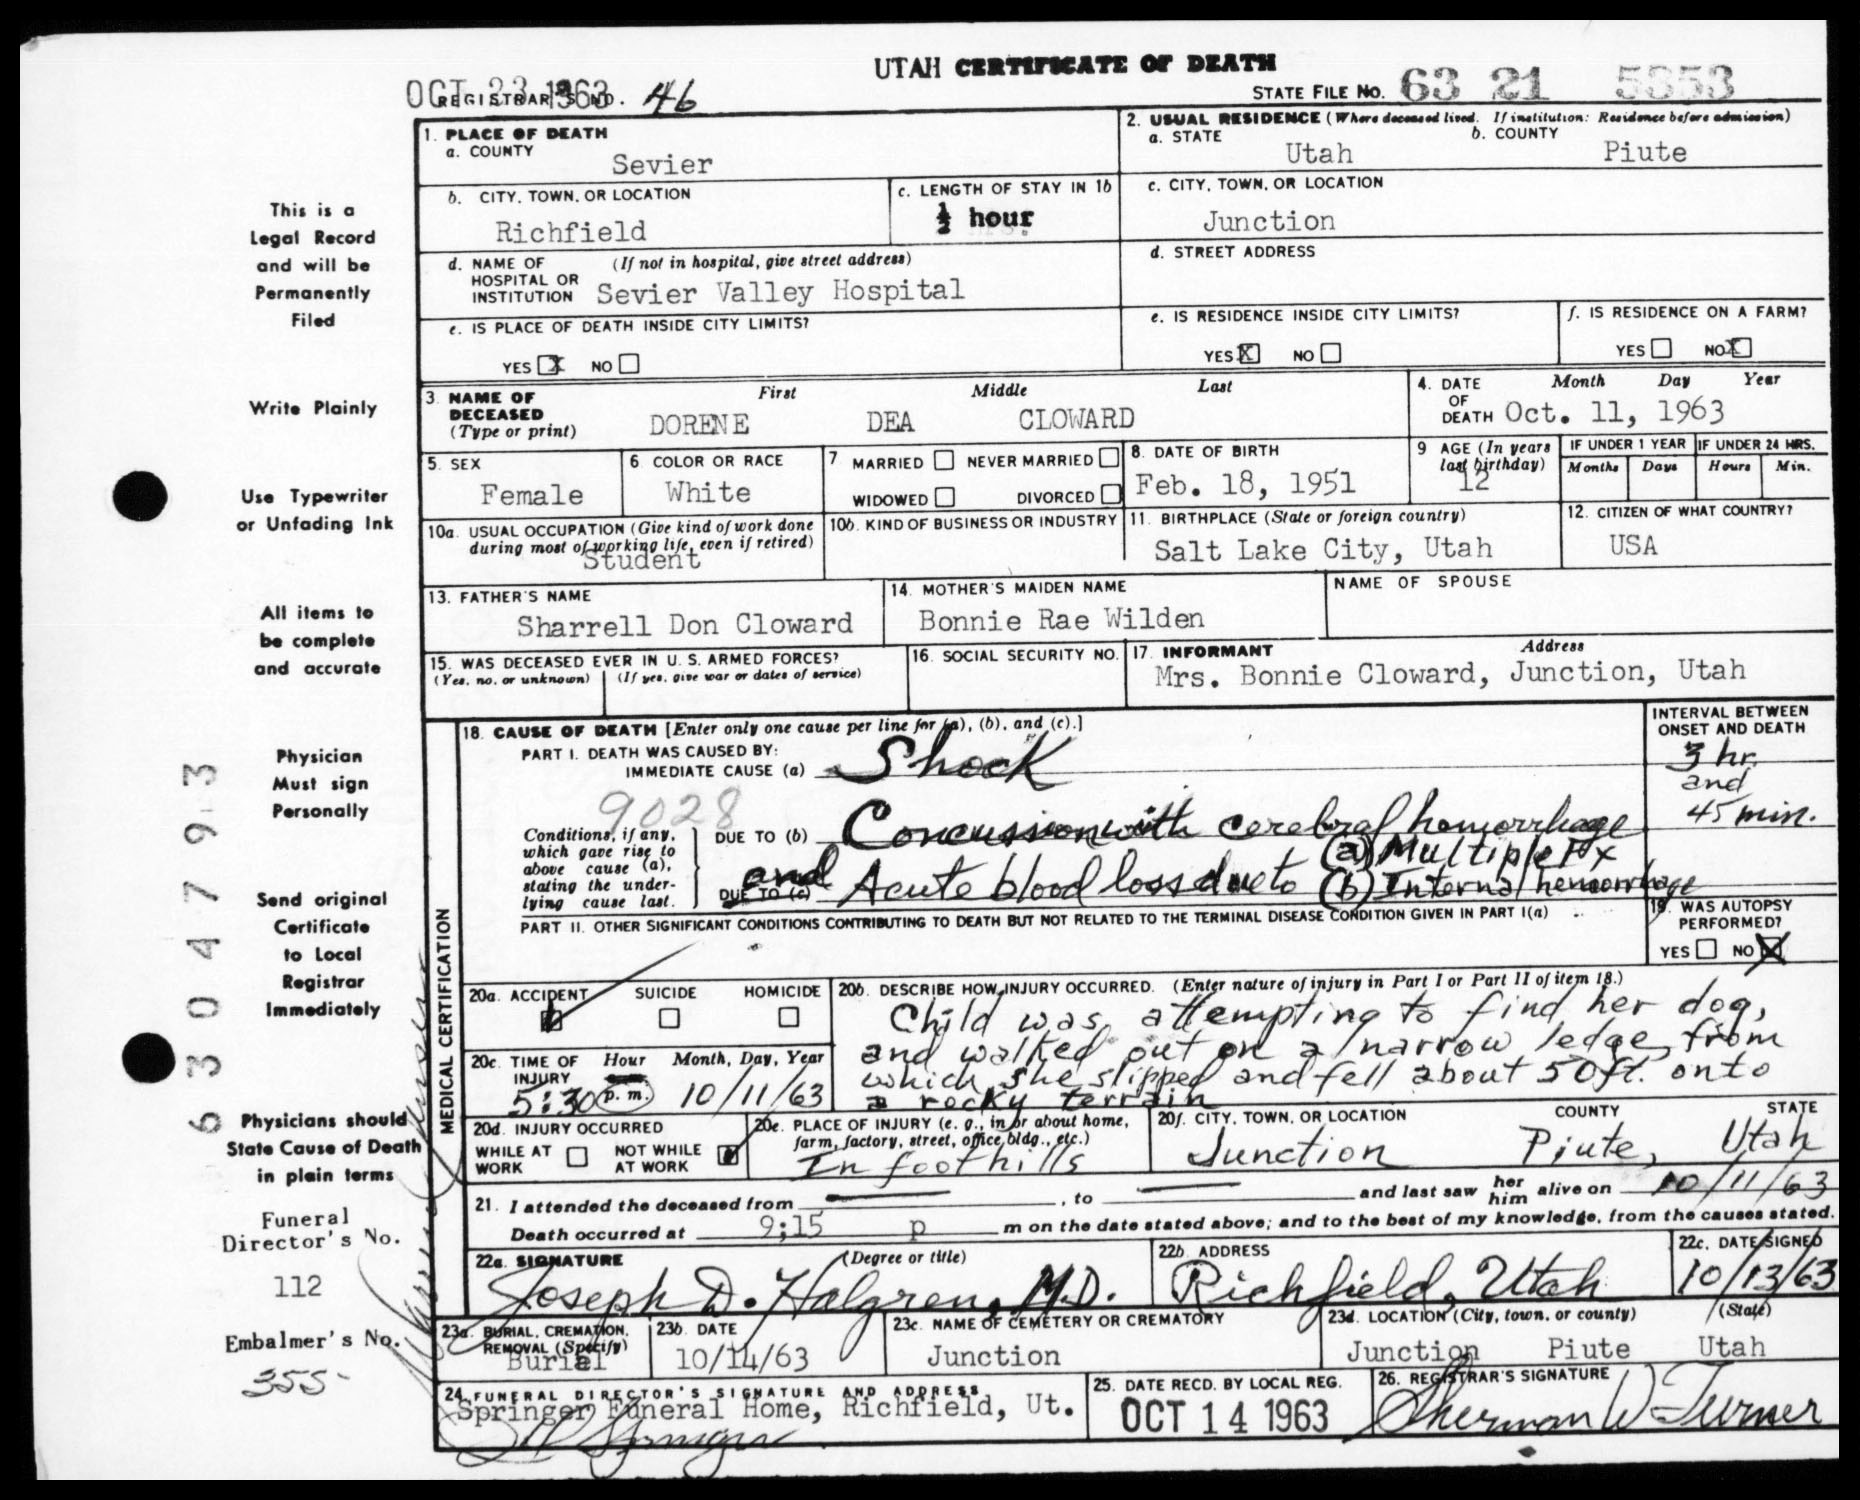 UTAH CERTIFICATE OF DEATH
OCT 23 1963
REGISTRAR'S NO. 46
STATE FILE NO. 63 21 5353
This is a
Legal Record
and will be
Permanently
Filed
Write Plainly
Use Typewriter
or Unfading Ink
All items to
be complete
and accurate
Physician
Must sign
Personally
Send original
Certificate
to Local
Registrar
Immediately
Physicians should
State Cause of Death
in plain terms
Funeral
Director's No.
112
Embalmer's No.
355
6304793
1. PLACE OF DEATH
a. COUNTY
Sevier
b. CITY, TOWN, OR LOCATION
Richfield
c. LENGTH OF STAY IN 1b
½ hour
d. NAME OF HOSPITAL OR INSTITUTION (If not in hospital, give street address)
Sevier Valley Hospital
e. IS PLACE OF DEATH INSIDE CITY LIMITS?
YES X NO
2. USUAL RESIDENCE (Where deceased lived. If institution: Residence before admission)
a. STATE
Utah
b. COUNTY
Piute
c. CITY, TOWN, OR LOCATION
Junction
d. STREET ADDRESS
e. IS RESIDENCE INSIDE CITY LIMITS?
YES X NO
f. IS RESIDENCE ON A FARM?
YES NO X
3. NAME OF DECEASED (Type or print)
First Middle Last
DORENE DEA CLOWARD
4. DATE OF DEATH Month Day Year
Oct. 11, 1963
5. SEX
Female
6. COLOR OR RACE
White
7. MARRIED NEVER MARRIED
WIDOWED DIVORCED
8. DATE OF BIRTH
Feb. 18, 1951
9 AGE (In years last birthday)
12
IF UNDER 1 YEAR
Months Days
IF UNDER 24 HRS.
Hours Min.
10a. USUAL OCCUPATION (Give kind of work done during most of working life, even if retired)
Student
10b. KIND OF BUSINESS OR INDUSTRY
11. BIRTHPLACE (State or foreign country)
Salt Lake City, Utah
12. CITIZEN OF WHAT COUNTRY?
USA
13. FATHER'S NAME
Sharrell Don Cloward
14. MOTHER'S MAIDEN NAME
Bonnie Rae Wilden
NAME OF SPOUSE
15. WAS DECEASED EVER IN U. S. ARMED FORCES?
(Yes, no, or unknown) (If yes, give war or dates of service)
16. SOCIAL SECURITY NO.
17. INFORMANT Address
Mrs. Bonnie Cloward, Junction, Utah
MEDICAL CERTIFICATION
18. CAUSE OF DEATH [Enter only one cause per line for (a), (b), and (c).]
PART I. DEATH WAS CAUSED BY:
IMMEDIATE CAUSE (a) Shock
9028
Conditions, if any, which gave rise to above cause (a), stating the underlying cause last.
DUE TO (b) Concussion with cerebral hemorrhage
DUE TO (c) and Acute blood loss due to (a) Multiple Fx
(b) Internal hemorrhage
INTERVAL BETWEEN ONSET AND DEATH
3 hr.
and
45 min.
PART II. OTHER SIGNIFICANT CONDITIONS CONTRIBUTING TO DEATH BUT NOT RELATED TO THE TERMINAL DISEASE CONDITION GIVEN IN PART I(a)
19. WAS AUTOPSY PERFORMED?
YES NO X
20a. ACCIDENT SUICIDE HOMICIDE
20b. DESCRIBE HOW INJURY OCCURRED. (Enter nature of injury in Part I or Part II of item 18.)
Child was attempting to find her dog,
and walked out on a narrow ledge, from
which she slipped and fell about 50 ft. onto
a rocky terrain
20c. TIME OF INJURY Hour Month, Day, Year
5:30 p. m. 10/11/63
20d. INJURY OCCURRED
WHILE AT WORK NOT WHILE AT WORK
20e. PLACE OF INJURY (e. g., in or about home, farm, factory, street, office bldg., etc.)
In foothills
20f. CITY, TOWN, OR LOCATION COUNTY STATE
Junction Piute, Utah
21. I attended the deceased from , to and last saw her him alive on 10/11/63
Death occurred at 9;15 p m on the date stated above; and to the best of my knowledge, from the causes stated.
22a. SIGNATURE (Degree or title)
Joseph D. Halgren, M.D.
22b. ADDRESS
Richfield, Utah
22c. DATE SIGNED
10/13/63
23a. BURIAL, CREMATION, REMOVAL (Specify)
Burial
23b. DATE
10/14/63
23c. NAME OF CEMETERY OR CREMATORY
Junction
23d. LOCATION (City, town, or county) (State)
Junction Piute Utah
24. FUNERAL DIRECTOR'S SIGNATURE AND ADDRESS
Springer Funeral Home, Richfield, Ut.
25. DATE RECD. BY LOCAL REG.
OCT 14 1963
26. REGISTRAR'S SIGNATURE
Sherman W Turner